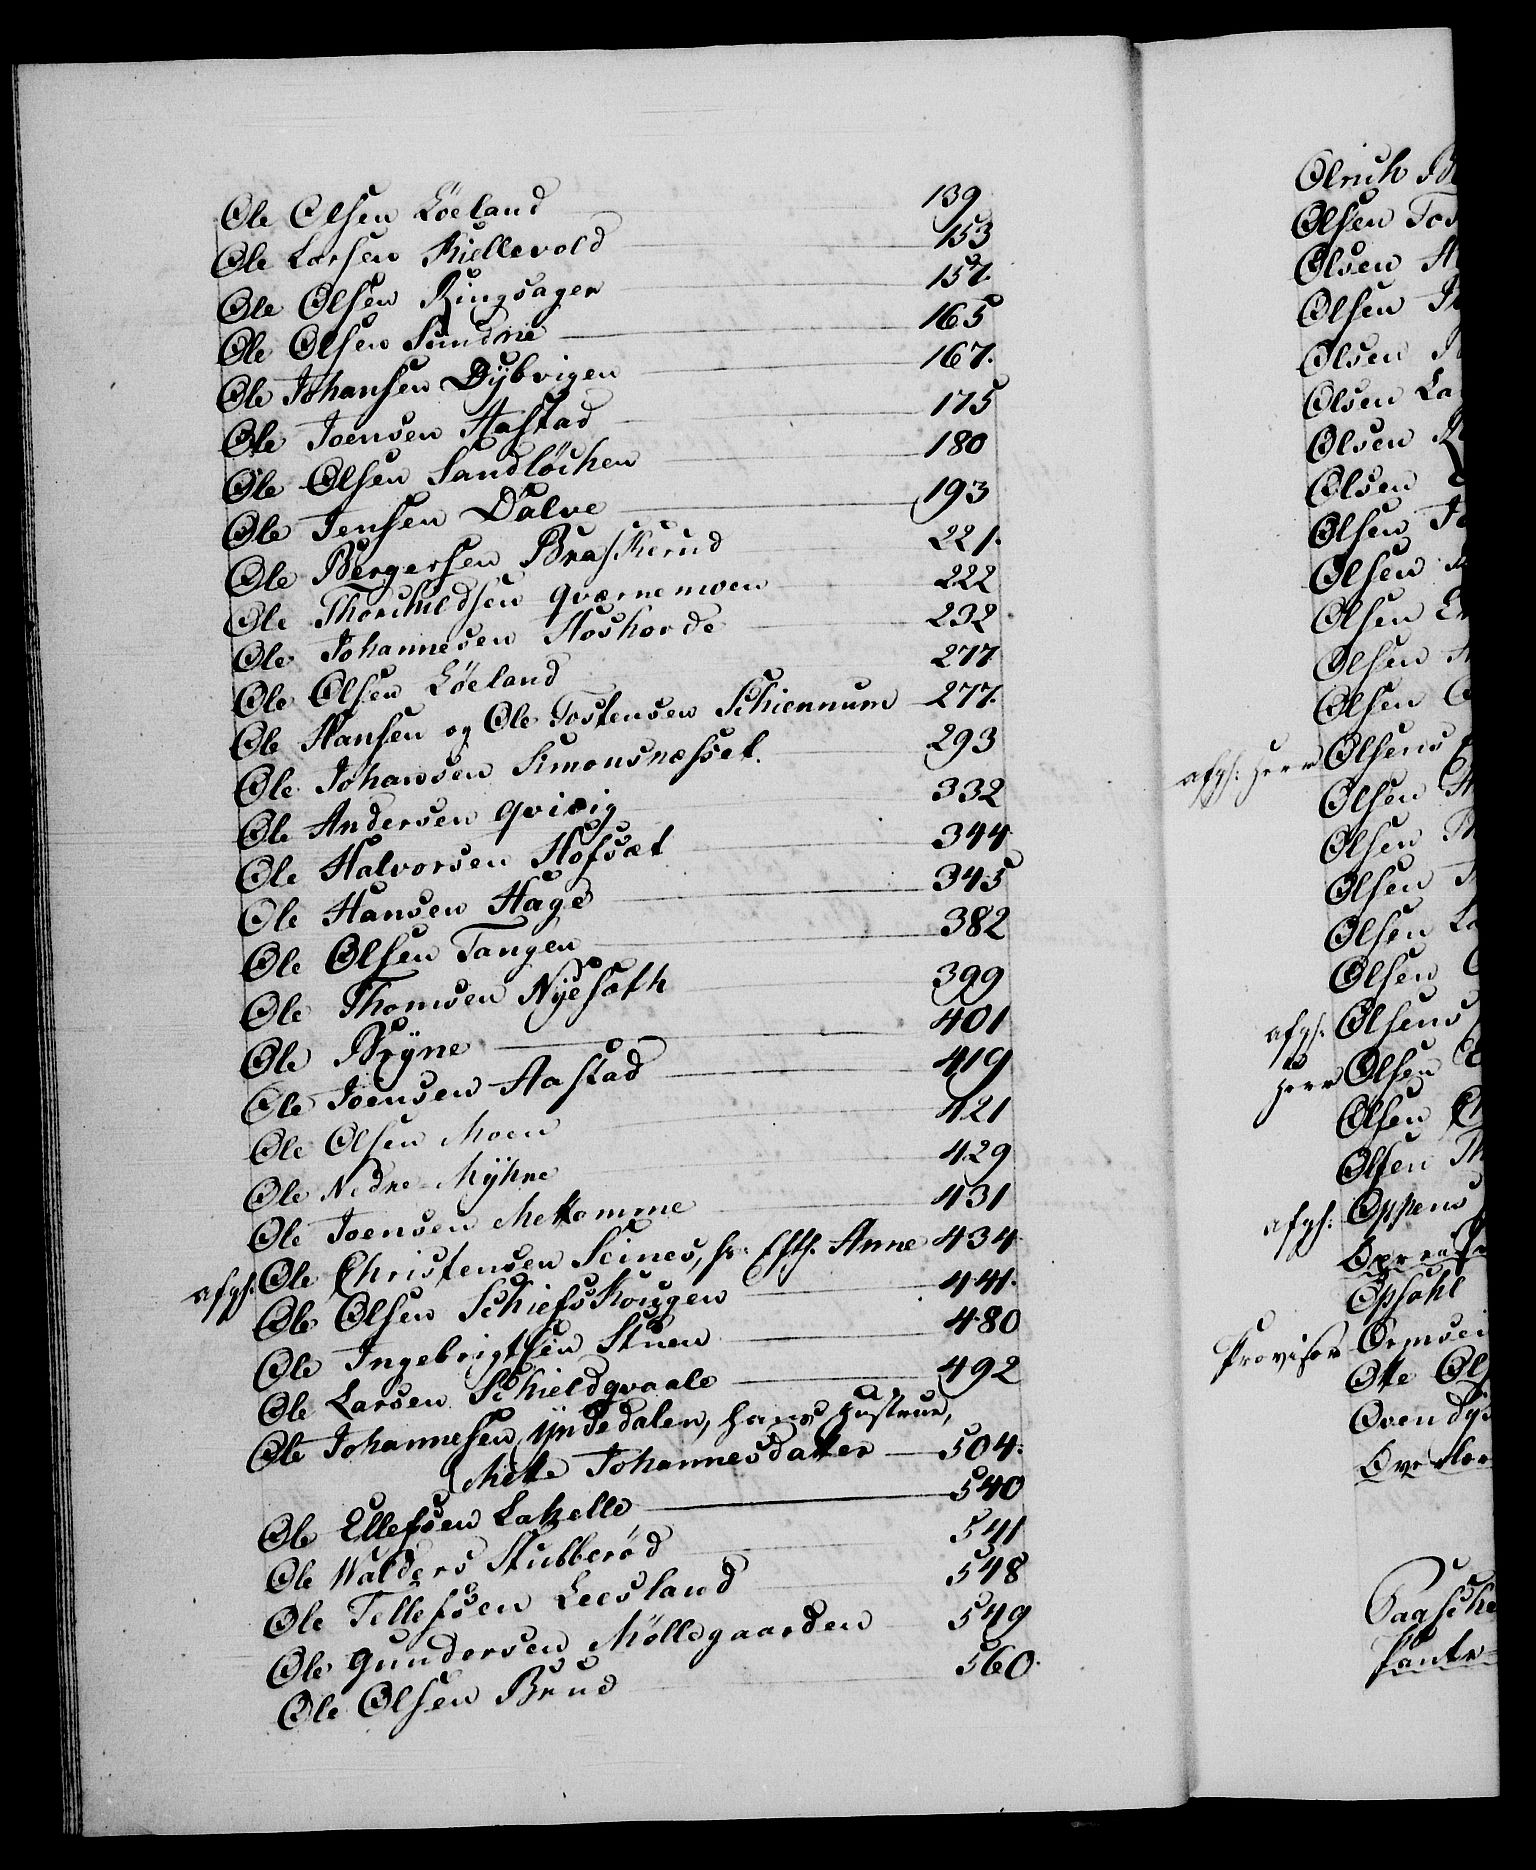 Ole Olsen Löeland 139
Ole Larsen Kiellevold 153
Ole Olsen Ringsager 157.
Ole Olsen Sundne 165
Ole Johansen Dÿbvigen 167.
Ole Joensen Aastad 175
Ole Olsen Sandlöcken 180
Ole Jensen Dalve 193
Ole Bergersen Braskerud 221.
Ole Thorchildsen Qværnemoen 222
Ole Johannesen Hoskorde 232
Ole Olsen Löeland 277
Ole Hansen og Ole Tostensen Schiennum 277.
Ole Johansen Simonsnæsset. 293
Ole Andersen Qvivig 332
Ole Halvorsen Hofsæt 344
Ole Hansen Hage 345
Ole Olsen Tangen 382
Ole Thomsen Nÿesæth 399
Ole Brÿne 401
Ole Joensen Aastad 419
Ole Olsen Moen 421
Ole Nedre Mÿhre 429
Ole Joensen Mettomme 431
afgh: Ole Christensen Seines, hs: Efth. Anne 434
Ole Olsen Schiefskougen 441.
Ole Ingebrigtsen Stuen 480
Ole Larsen Schieldqvaale 492
Ole Johannesen Ÿndedalen, hans Hustrue,
Mette Johannesdatter 504.
Ole Ellefsen Lakelle 540
Ole Walders Stubberöd 541
Ole Tellefsen Leesland 548
Ole Gundersen Möllegaarden 549
Ole Olsen Brud 560.
Olrich
Olsen
Olsen
Olsen
Olsen
Olsen
Olsen
Olsen
Olsen
Olsen
Olsen
Olsen
Olsen
afgh: Herr Olsens
Olsen
Olsen
Olsen
Olsen
Olsen
afgh: Olsens
Herr Olsen
Olsen
Olsen
afgh: Oppens
Opsahl
Provisor
Otte
Paasche